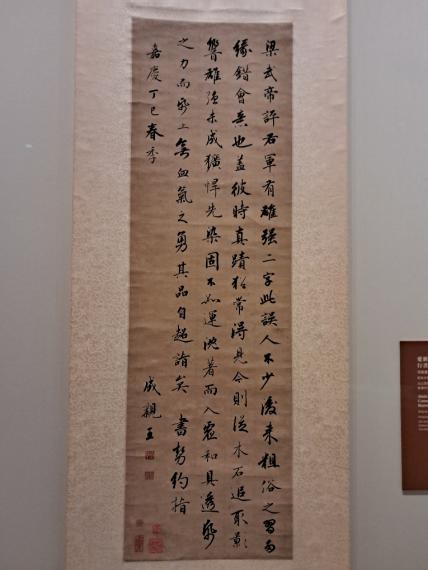 梁武帝評右軍有雄强二字此誤人不少後来粗俗之習由
緣錯會意也蓋彼時真蹟猶常得見今則從木石追取影
響雄强未成獷悍先染固不如運沈著而入虛和具透紙
之力而紙上無血氣之勇其品自超詣矣 書勢約指
嘉慶丁巳春季
成親王